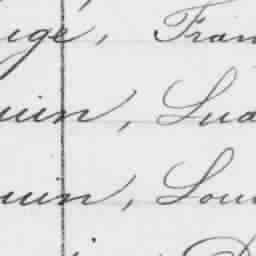 ige, Fran
uin, Lud
uin, Loui